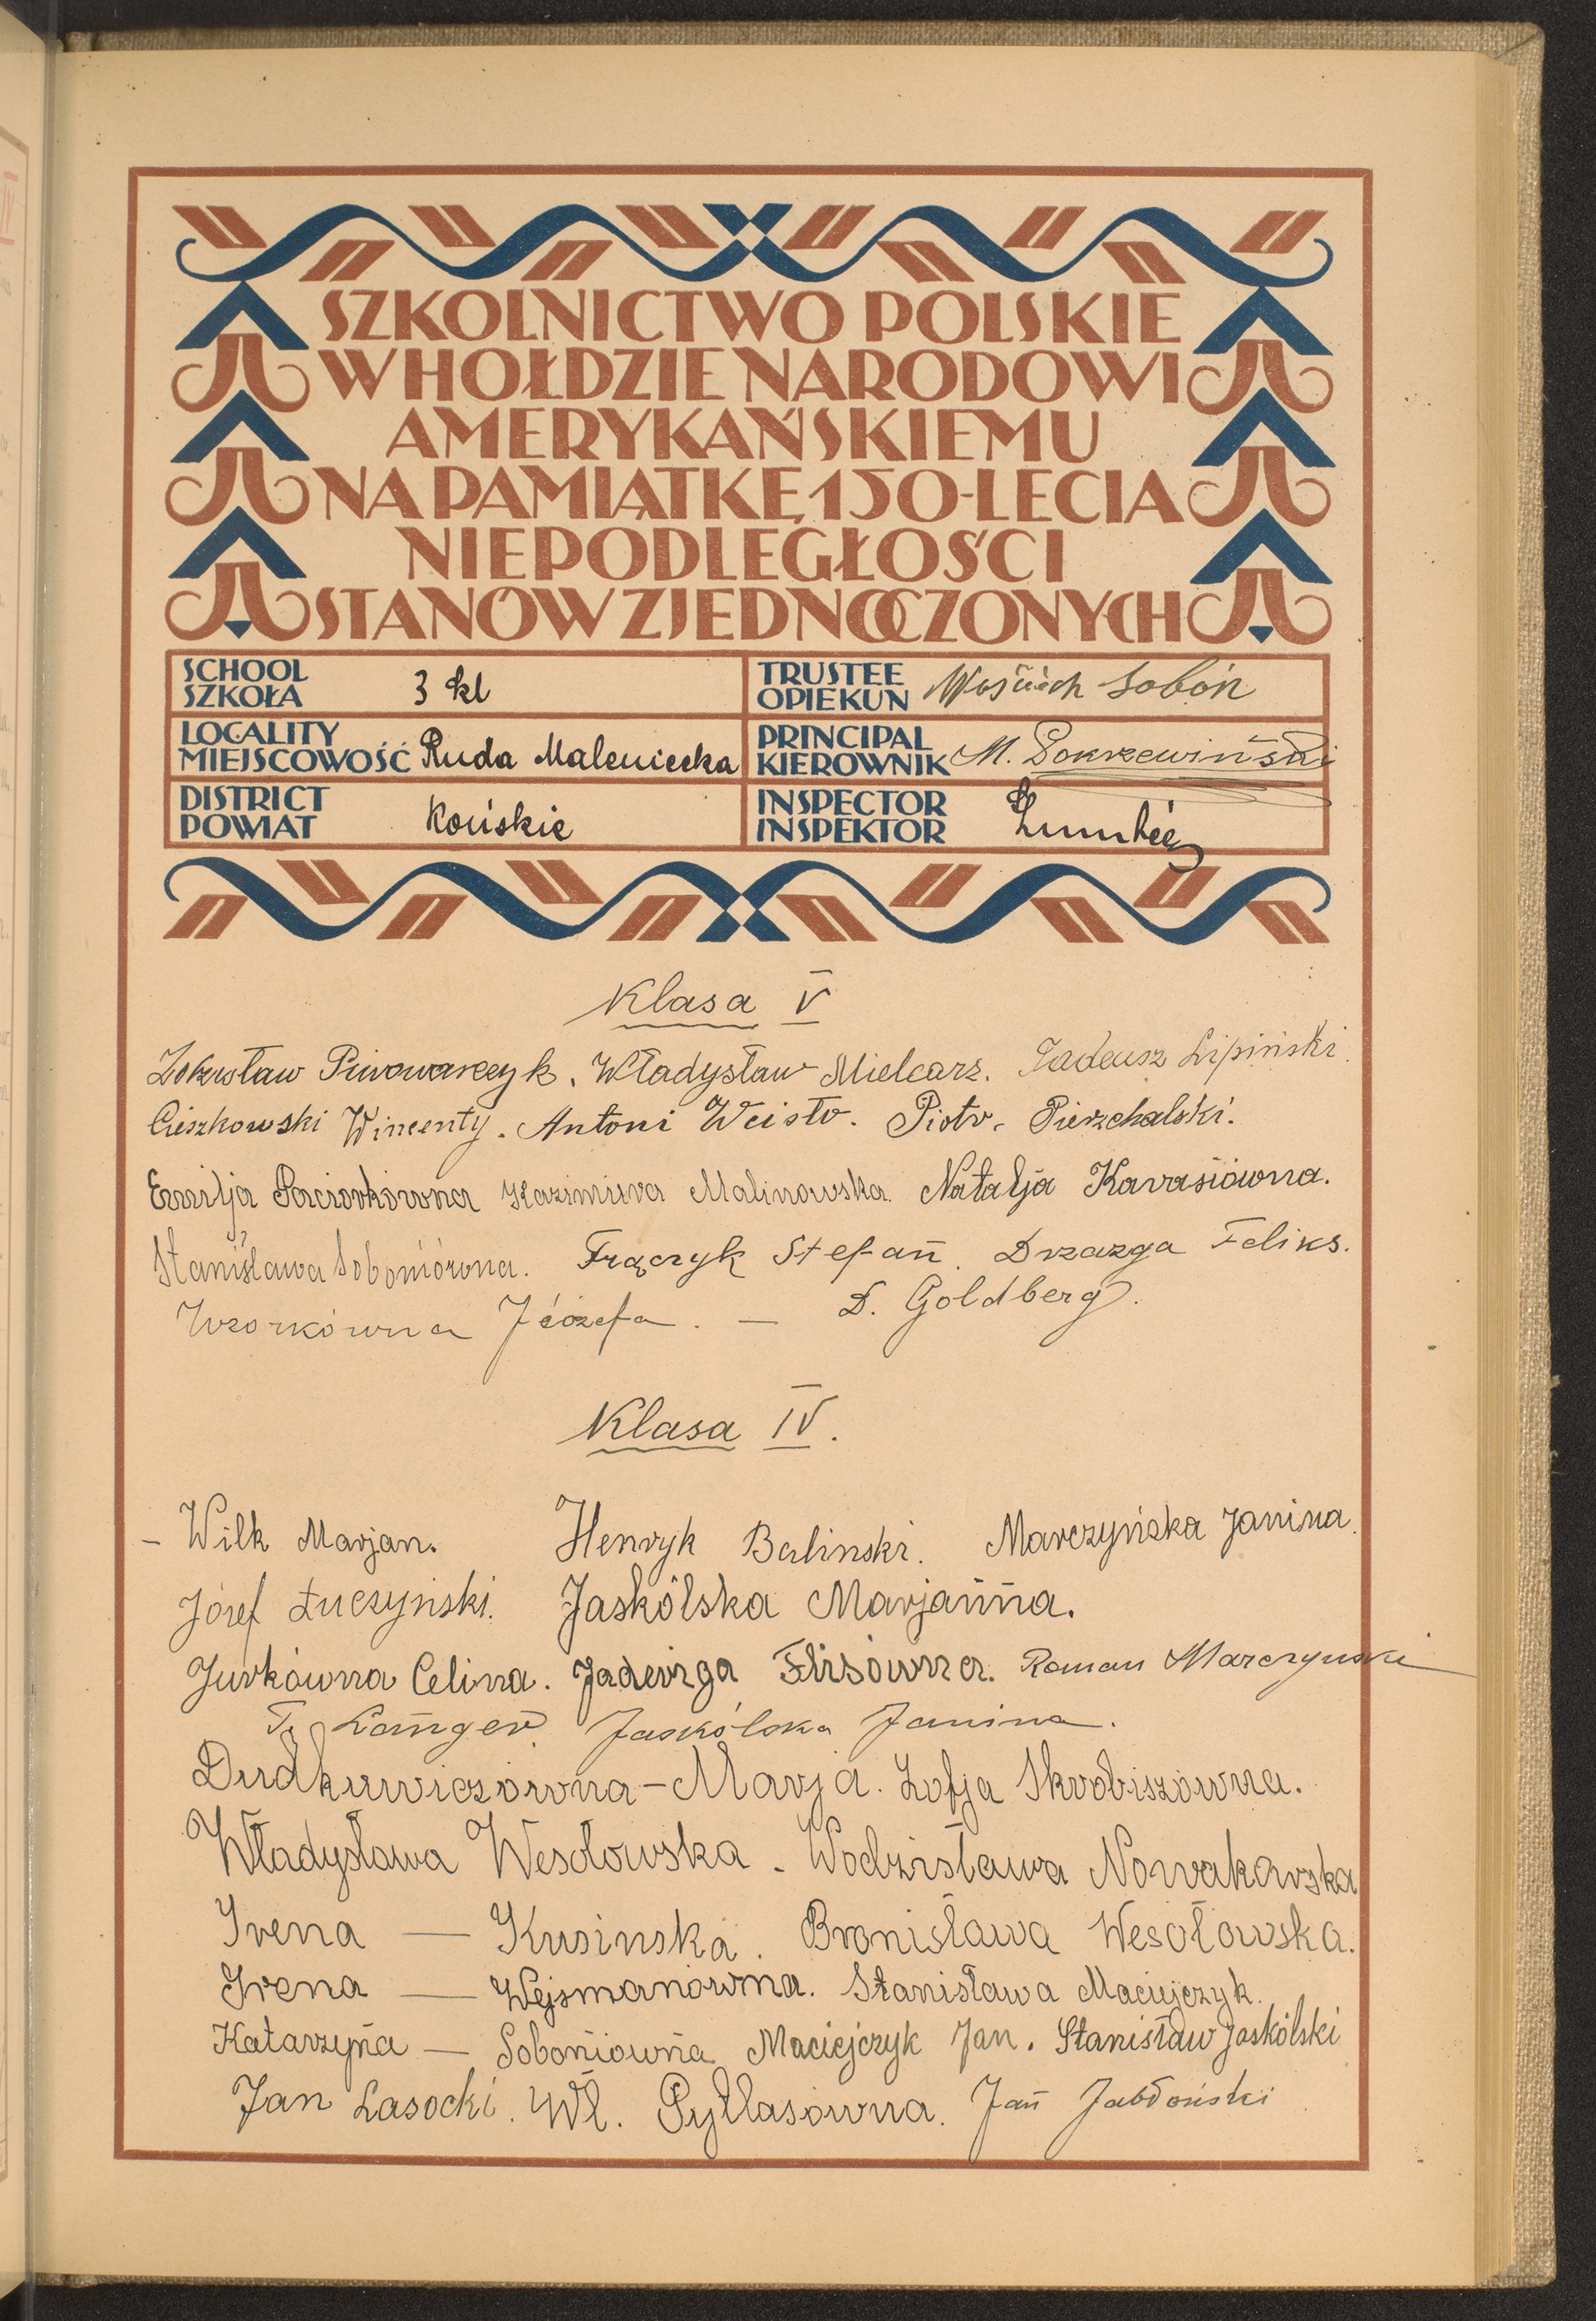 SZKOLNICTWO POLSKIE
W HOŁDZIE NARODOWI
AMERYKAŃSKIEMU
NA PAMIĄTKĘ 150-LECIA
NIEPODLEGŁOŚCI
STANÓW ZJEDNOCZONYCH
SCHOOL
SZKOŁA
3 kl
TRUSTEE
OPIEKUN
Wojciech Soboń
LOCALITY
MIEJSCOWOŚĆ
Ruda Maleniecka
PRINCIPAL
KIEROWNIK
M.
DISTRICT
POWIAT
Końskie
INSPECTOR
INSPEKTOR
Klasa V
Piwowarczyk. Władysław Mielcarz. Tadeusz Lipiński.
Cieszkowski Wincenty. Antoni Weisło. Piotr. Pierzchalski.
Emilja Paciorkówna Kazimiera Malinowska. Natalja Karasiówna.
Stanisława Soboniówna. Frączyk Stefan. Drzazga Feliks.
Wzorkówna Józefa. — D. Goldberg.
Klasa IV.
- Wilk Marjan. Henryk Balinski. Marczyńska Janina.
Józef Łuczyński. Jaskólska Marjanna.
Jurkówna Celina. Jadwiga Flisówna. Roman Marczyński
Langer. Jaskólska Janina.
Dudkiewiczówna - Marja. Zofja Skrobiszówna.
Władysława Wesołowska - Wodzisława Nowakowska
Irena — Kusinska. Bronisława Wesołowska.
Irena — Wejsmanówna. Stanisława Maciejczyk.
Katarzyna — Soboniówna Maciejczyk Jan. Stanisław Jaskólski
Jan Lasocki. Wł. Pytlasówna. Jan Jabłoński